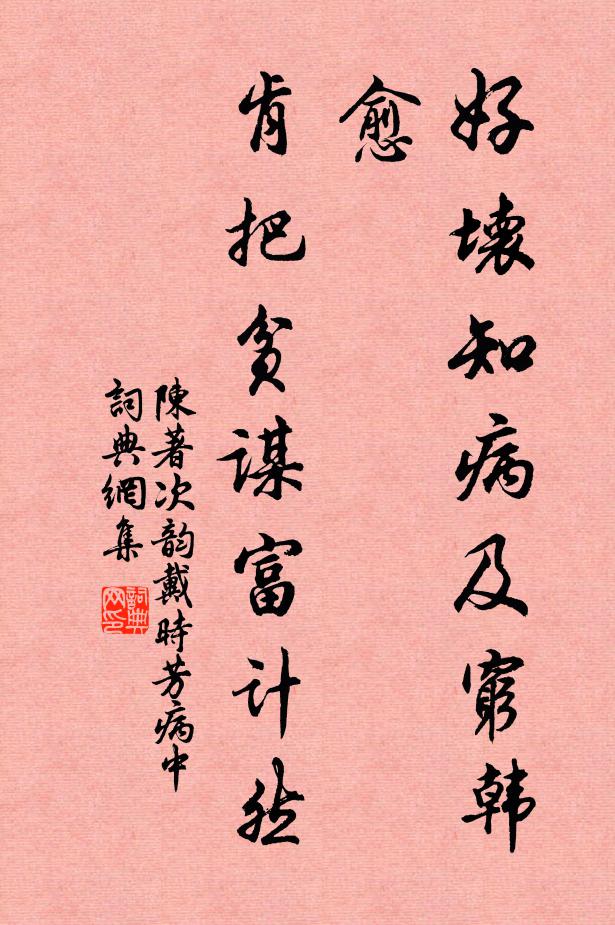 好壞知病及窮韩
愈
肯把貧謀富计然
陳著次韵戴時芳病中
詞典網集
詞典
网印